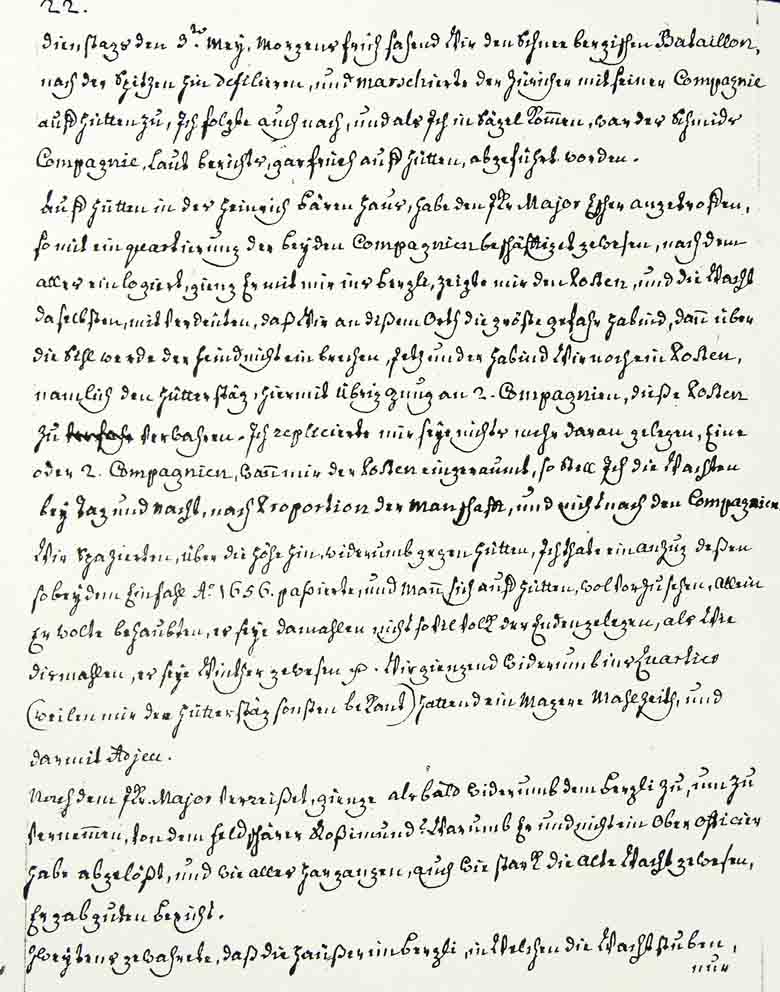 22.
dienstags den 3.ᵗᵉ Mey, Morgens früh sahend Wir den Schneebergischen Bataillon,
nach der Spitzen hin defilieren, und marschierte der Züricher mit seiner Compagnie
auf Hütten zu, Ich folgte auch nach, und als Ich in Sägel kommen, war des Schmids
Compagnie, laut berichts, gar früeh auf Hütten, abgeführt worden.
Auf Hütten in des Heinrich Bären Haus, habe den Jkr. Major Escher angetroffen,
so mit einquartierung der beyden Compagnien beschäfftiget gewesen, nach dem
alles ein logiert, gieng Er mit mir ins bergli, zeigte mir den Posten, und die Wacht
daselbsten, mit Verdeüten, daß Wir an dißem Orth die gröste gefahr habind, dann über
die Sihl werde der feind nicht ein brechen, Jetzunder habind Wir noch ein Posten,
namlich den Hüttersäg, hiermit übrig gnug an 2. Compagnien, dieße Posten
zu verwahren. Ich replicierte mir seye nichts mehr daran gelegen, Eine
oder 2. Compagnien, wann mir der Posten eingeraumt, so stell Ich die Wachten
bey tag und nacht, nach Proportion der Manschafft, und nicht nach den Compagnien.
Wir Spazierten, über die höhe hin, widerumb gegen Hütten, Ich thate ein anzug deßen
so bey dem Einfahl Aº 1656. paßierte, und Mann sich auf Hütten, wol vorzusehen, Allein
Er wolte behaubten, es seye damahlen nicht so vil Volk der Enden gelegen, als Wie
dismahlen, es seye Winther gewesen ꝛc. Wir giengend widerumb ins Quartier
(weilen mir der Hüttersäg sonsten bekant) hattend ein Magere Mahlzeith, und
darmit Adjeu.
Nach dem Jkr. Major Verreißet, gienge als bald widerumb dem bergli zu, um zu
Vernemmen, Von dem feldschärer Roßimund? Warumb Er und nicht ein Ober officier
habe abgelößt, und wie alles hargangen, auch wie stark die alte Wacht gewesen,
Er gab guten bericht.
Zweytens gewahrete, daß die Haüßer im bergli, in Welchen die Wachtstuben,
nur